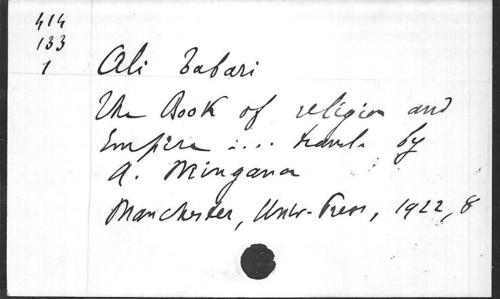 414
133
1
Ali Tabari
The Book of religion and
Empire .... transl. by
A. Mingana
Manchester, Univ-Press, 1922, 8